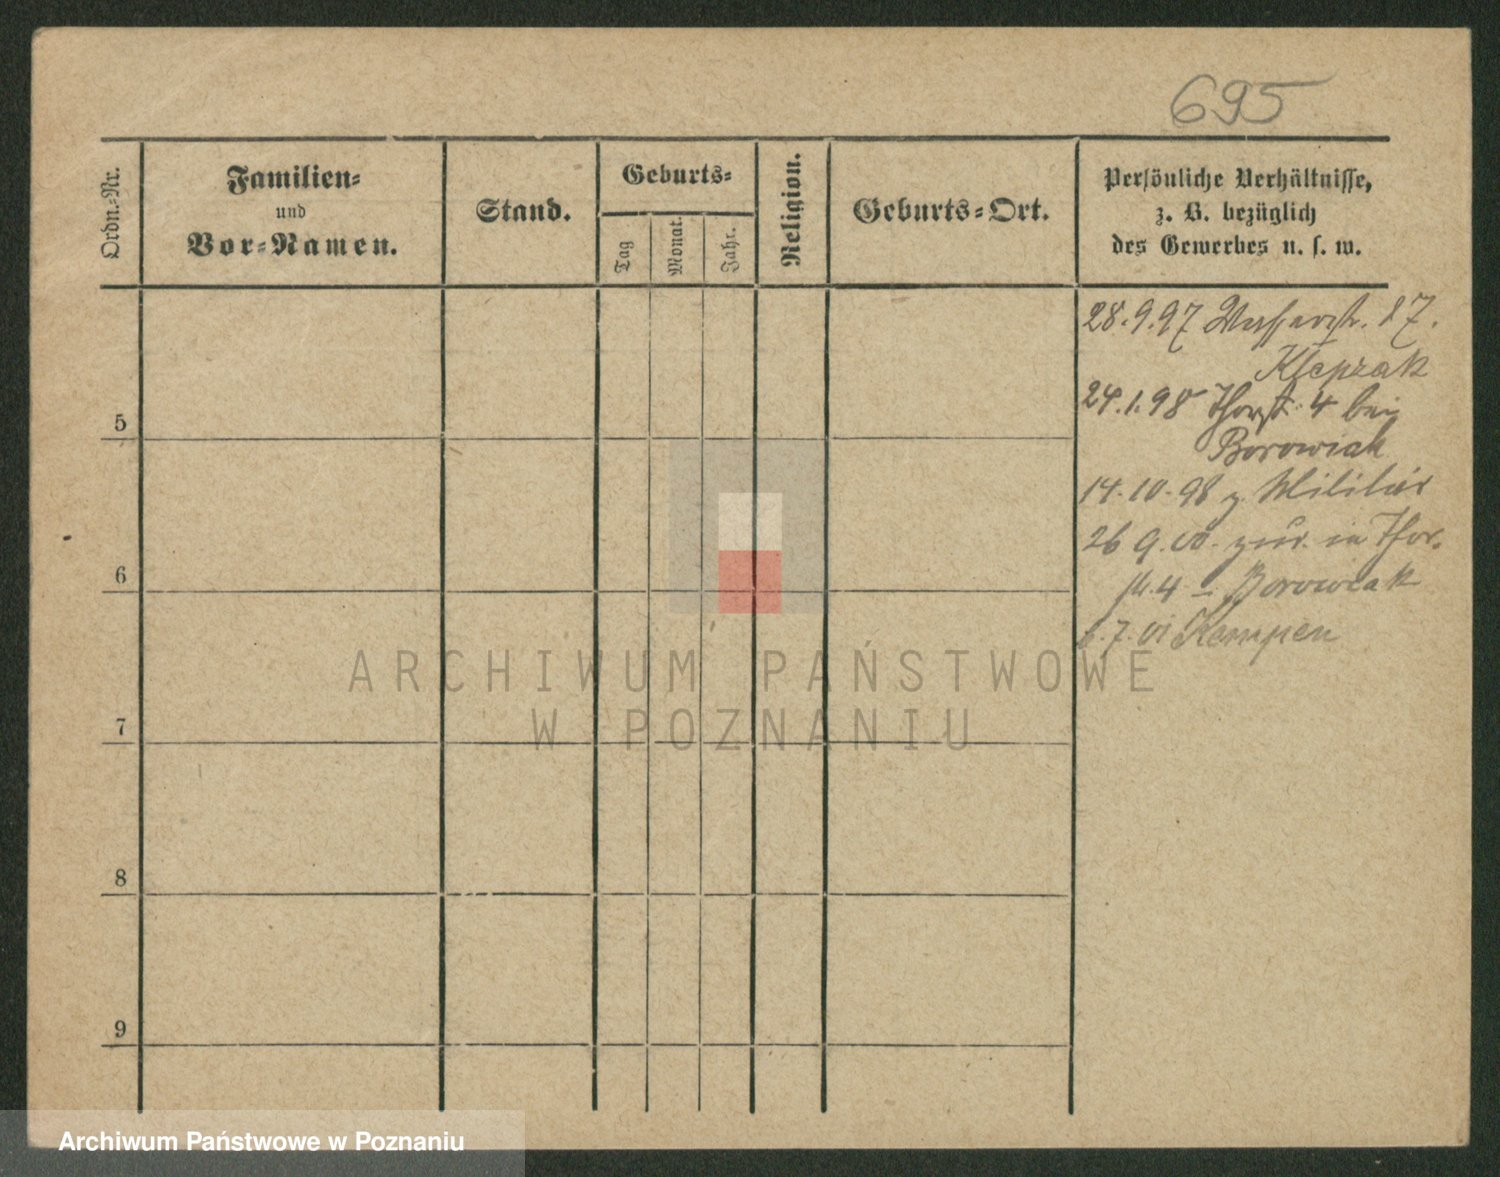 695
Ordn.-Nr.
Familien-
und
Vor-Namen.
Stand.
Geburts-
Tag
Monat.
Jahr.
Religion.
Geburts-Ort.
Persönliche Verhältnisse,
z. B. bezüglich
des Gewerbes u. s. w.
28.9.97 17.
24.1.98 Thorst. 4 bei
Borowiak
14.10.98 z. Militär
26 9.00. zur. in Thor-
str. 4 Borowiak
7.01 Kempen
5
6
7
8
9
ARCHIWUM PAŃSTWOWE
W POZNANIU
Archiwum Państwowe w Poznaniu